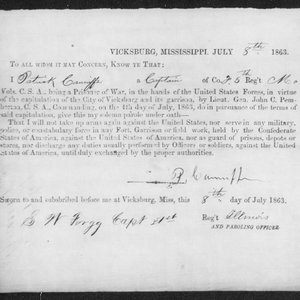 VICKSBURG, MISSISSIPPI, JULY 8th. 1863.
TO ALL WHOM IT MAY CONCERN, KNOW YE THAT:
I Patrick Canniff a Captain of Co. F 5th Reg't Mo.
Vols. C. S. A., being a Prisoner of War, in the hands of the United States Forces, in virtue
of the capitulation of the City of Vicksburg and its garrison, by Lieut. Gen. John C. Pem-
berton, C. S. A., Commanding, on the 4th day of July, 1863, do in pursuance of the terms
of said capitulation, give this my solemn parole under oath—
That I will not take up arms again against the United States, nor serve in any military,
police, or constabulary force in any Fort, Garrison or field work, held by the Confederate
States of America, against the United States of America, nor as guard of prisons, depots or
stores, nor discharge any duties usually performed by Officers or soldiers, against the United
States of America, until duly exchanged by the proper authorities.
P Canniff
Sworn to and subscribed before me at Vicksburg, Miss, this 8th day of July 1863.
Capt 31st Reg't Illinois
AND PAROLING OFFICER